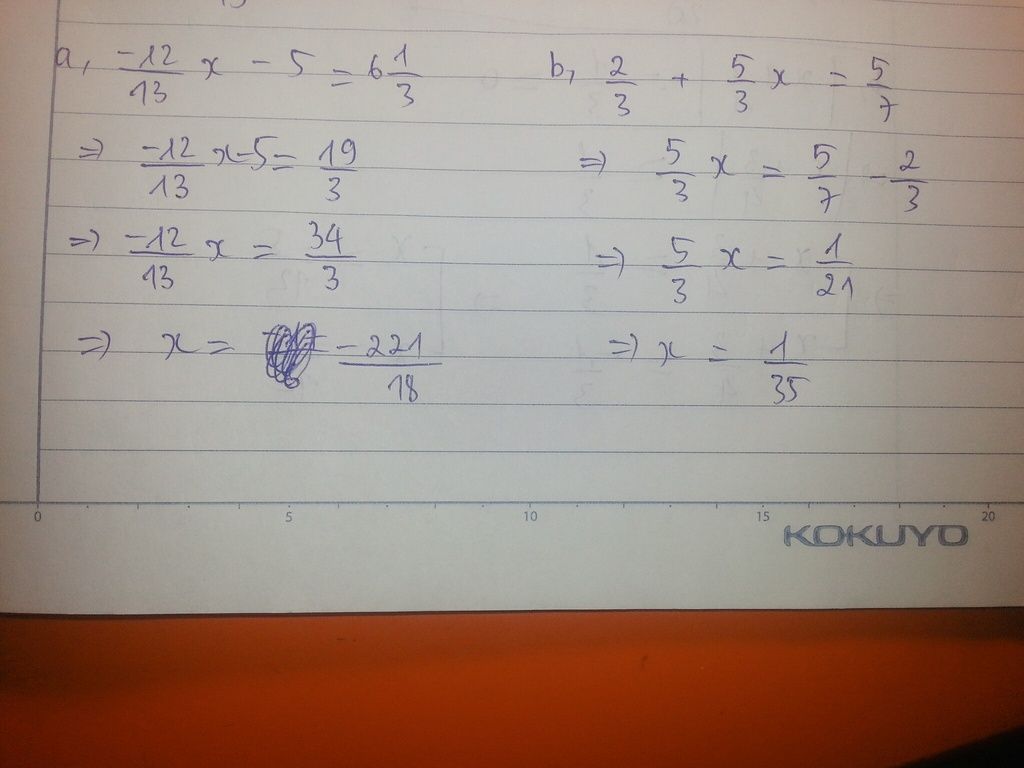 a, -12/13 x - 5 = 6 1/3
=> -12/13 x - 5 = 19/3
=> -12/13 x = 34/3
=> x = -221/18
b, 2/3 + 5/3 x = 5/7
=> 5/3 x = 5/7 - 2/3
=> 5/3 x = 1/21
=> x = 1/35
0 5 10 15 20
KOKUYO